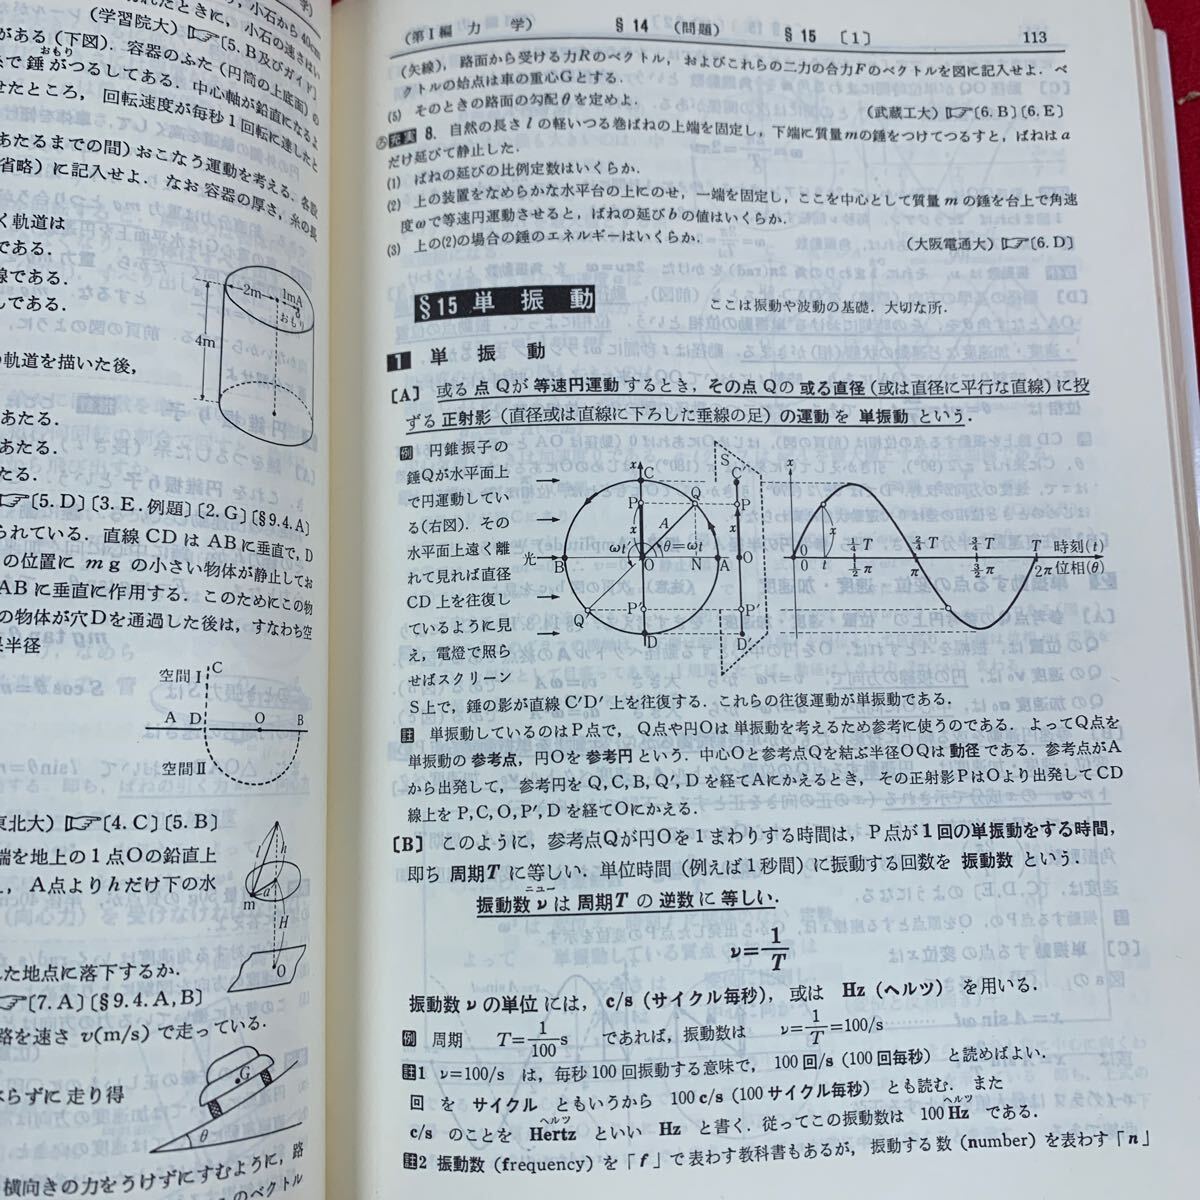 (第Ⅰ編 力 学) §14 (問題) §15 〔1〕 113
(矢線), 路面から受ける力Rのベクトル, およびこれらの二力の合力Fのベクトルを図に記入せよ. ベ
クトルの始点は車の重心Gとする.
(5) そのときの路面の勾配θを定めよ. (武蔵工大)☞〔6.B〕〔6.E〕
8. 自然の長さlの軽いつる巻ばねの上端を固定し, 下端に質量mの錘をつけてつるすと, ばねはa
だけ延びて静止した.
(1) ばねの延びの比例定数はいくらか.
(2) 上の装置をなめらかな水平台の上にのせ, 一端を固定し, ここを中心として質量mの錘を台上で角速
度ωで等速円運動させると, ばねの延びbの値はいくらか.
(3) 上の(2)の場合の錘のエネルギーはいくらか. (大阪電通大)☞〔6.D〕
§15 単振動 ここは振動や波動の基礎. 大切な所.
1 単振動
〔A〕 或る点Qが等速円運動するとき, その点Qの或る直径(或は直径に平行な直線)に投
ずる正射影(直径或は直線に下ろした垂線の足)の運動を単振動という.
例 円錐振子の
錘Qが水平面上
で円運動してい
る(右図). その
水平面上遠く離
れて見れば直径
CD上を往復し
ているように見
え, 電燈で照ら
せばスクリーン
S上で, 錘の影が直線C′D′上を往復する. これらの往復運動が単振動である.
光 x C P Q A x ωt θ=ωt B O N A Q′ P′ D
S C′ P O P′ D′
x 0 0 x t 1/4 T 1/2 π 2/4 T π 3/4 T 3/2 π T 2π 時刻(t) 位相(θ)
註 単振動しているのはP点で, Q点や円Oは単振動を考えるため参考に使うのである. よってQ点を
単振動の参考点, 円Oを参考円という. 中心Oと参考点Qを結ぶ半径OQは動径である. 参考点がA
から出発して, 参考円をQ, C, B, Q′, Dを経てAにかえるとき, その正射影PはOより出発してCD
線上をP, C, O, P′, Dを経てOにかえる.
〔B〕 このように, 参考点Qが円Oを1まわりする時間は, P点が1回の単振動をする時間,
即ち周期Tに等しい. 単位時間(例えば1秒間)に振動する回数を振動数という.
振動数ν(ニュー)は周期Tの逆数に等しい.
ν=1/T
振動数νの単位には, c/s(サイクル毎秒), 或は Hz(ヘルツ) を用いる.
例 周期 T=1/100 s であれば, 振動数は ν=1/T=100/s
註1 ν=100/s は, 毎秒100回振動する意味で, 100回/s(100回毎秒) と読めばよい.
回をサイクルともいうから 100 c/s(100サイクル毎秒) とも読む. また
c/s のことを Hertz(ヘルツ) といい Hz と書く. 従ってこの振動数は 100 Hz(ヘルツ) である.
註2 振動数(frequency)を「f」で表わす教科書もあるが, 振動する数(number)を表わす「n」
小石から40cm
れたときに, 小石の速さはい
(学習院大)☞〔5.B及びガイド〕
がある(下図). 容器のふた(円筒の上底面)の
で錘(おもり)がつるしてある. 中心軸が鉛直になるよ
せたところ, 回転速度が毎秒1回転に達したと
あたるまでの間)おこなう運動を考える. 各設
省略)に記入せよ. なお容器の厚さ, 糸の長
く軌道は
である.
線である.
である.
2m 1m A おもり 4m
の軌道を描いた後,
あたる.
あたる.
たる.
☞〔5.D〕〔3.E.例題〕〔2.G〕〔§9.4.A〕
られている. 直線CDはABに垂直で, D
の位置にmgの小さい物体が静止してお
ABに垂直に作用する. このためにこの物
の物体が穴Dを通過した後は, すなわち空
半径
空間Ⅰ C A D O B 空間Ⅱ
東北大)☞〔4.C〕〔5.B〕
端を地上の1点Oの鉛直上
, A点よりhだけ下の水
m a h l H O
れた地点に落下するか.
☞〔7.A〕〔§9.4.A,B〕
路を速さ v(m/s) で走っている.
G θ
らずに走り得
横向きの力をうけずにすむように, 路
のベクトル